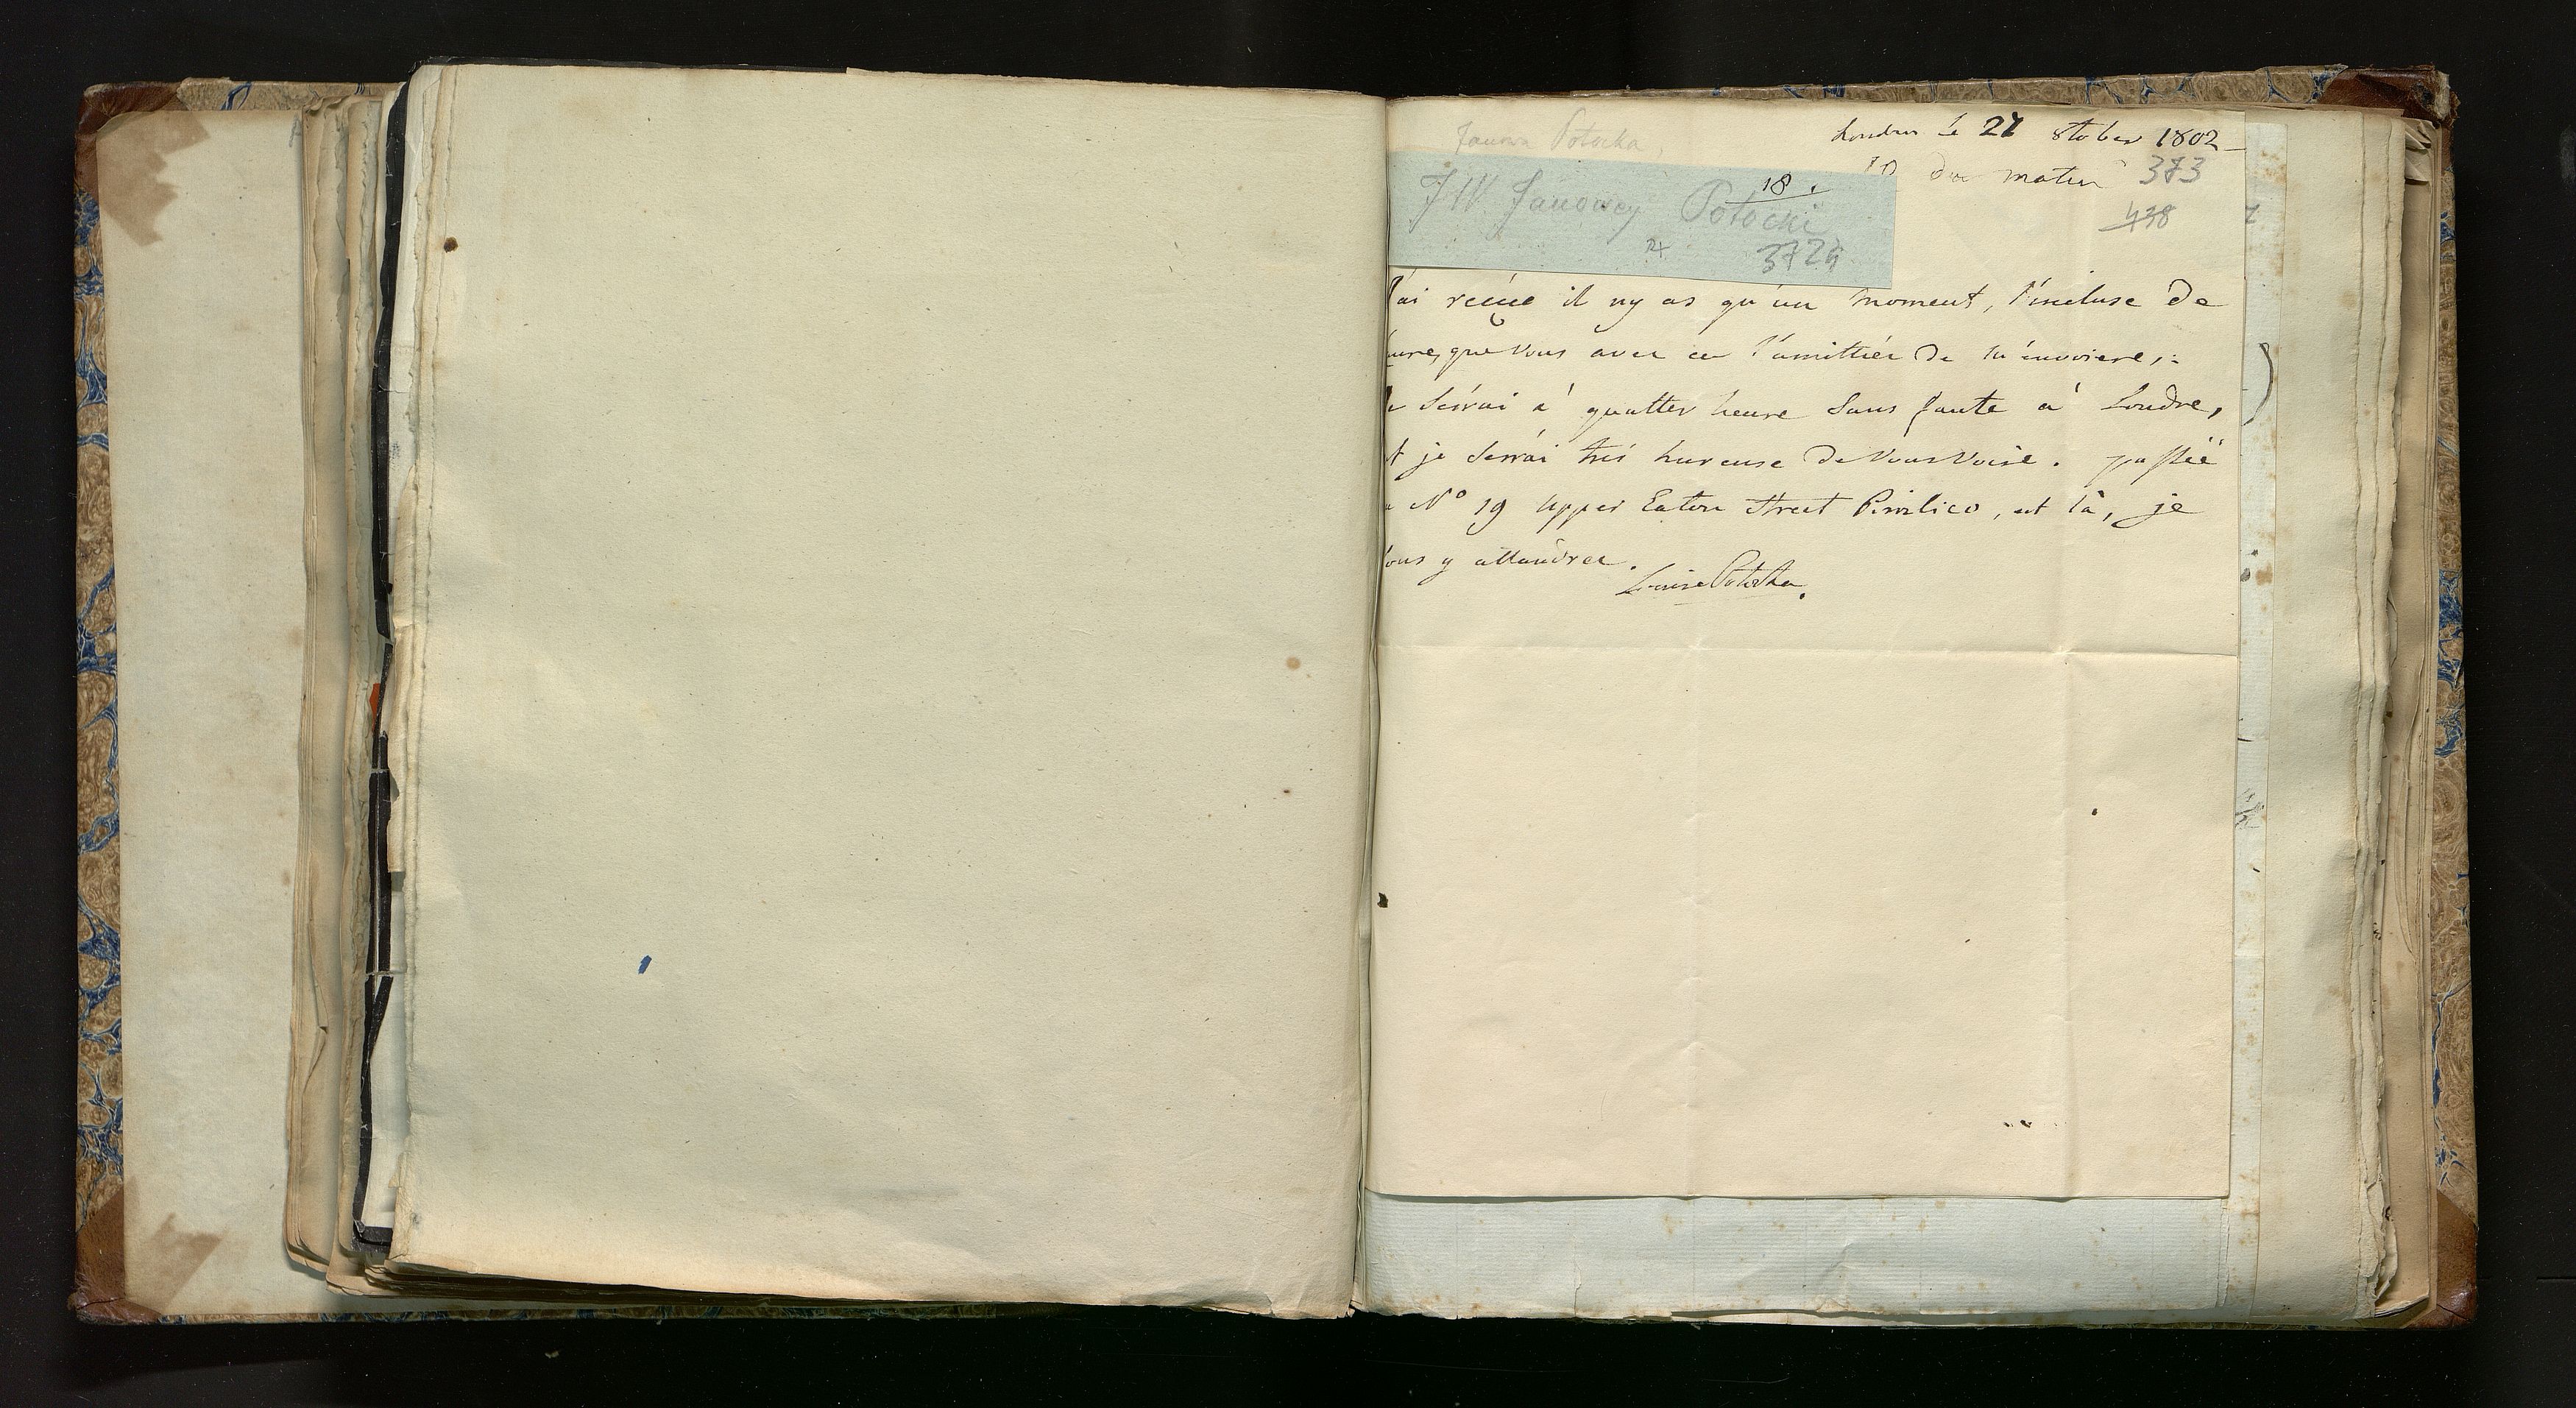 Janowa Potocka
Londres le 27 8tober 1802
10 du matin 373
438
18.
JW Janowey Potocki
372
J'ai reçue il ny as qu'un moment, l'incluse de
que vous avez eu l'amittiée de m'envoiere,
Je serrai a' quatter heure Sans faute a' Londre,
et je Serrai tres hureuse de Vous Voire. passéé
N° 19 upper Eaton Street Pimlico, et là, je
Vous y attandree.
Louise Potocka.